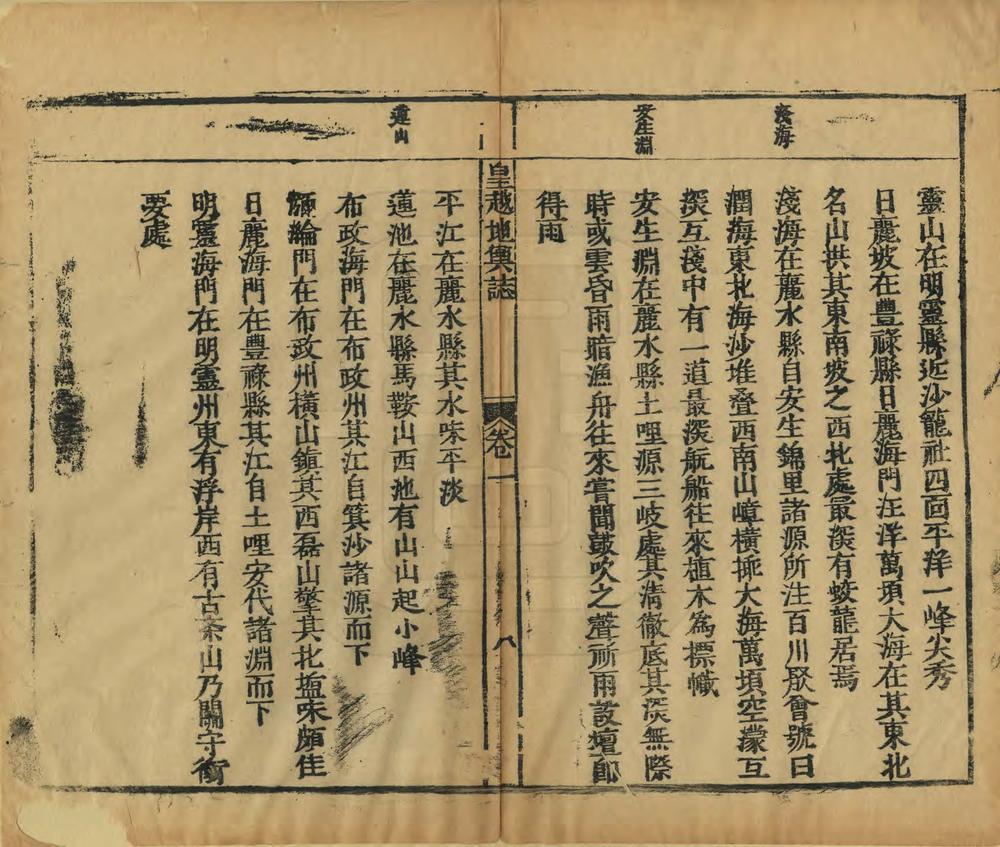 淺海
安生淵
靈山在明靈縣近沙籠社四面平洋一峰尖秀
日麗坡在豐祿縣日麗海門汪洋萬頃大海在其東北
名山拱其東南坡之西北處最深有蛟龍居焉
淺海在麗水縣自安生錦里諸源所注百川聚會號曰
澗海東北海沙堆叠西南山嶂橫挪大海萬頃空濛互
深互淺中有一道最深航船往來植木為標幟
安生淵在麗水縣土哩源三岐處其清徹底其深無際
時或雲昏雨暗漁舟往來嘗聞鼓吹之聲祈雨設壇即
得雨
皇越地輿誌 卷一 八
蓮山
平江在麗水縣其水味平淡
蓮池在麗水縣馬鞍山西池有山山起小峰
布政海門在布政州其江自箕沙諸源而下
瀰淪門在布政州橫山鎮其西磊山擎其北塩味頗佳
日麗海門在豐祿縣其江自土哩安代諸淵而下
明靈海門在明靈州東有浮岸西有古茶山乃關守衝
要處